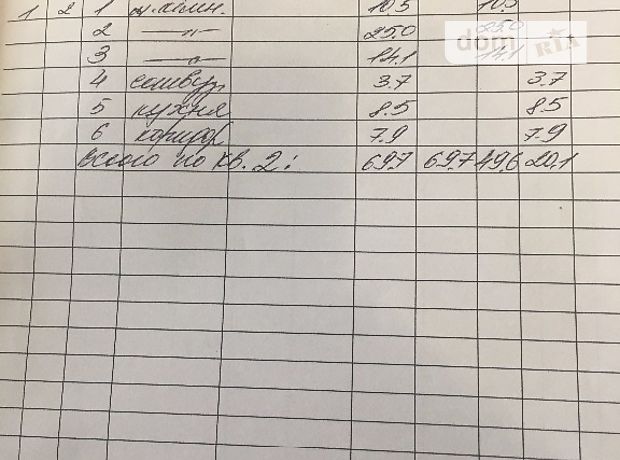 1 2 1 ж.комн. 10.5 10.5
2 —"— 25.0 25.0
3 —"— 14.1 14.1
4 санвуз. 3.7 3.7
5 кухня 8.5 8.5
6 коридор 7.9 7.9
Всего по кв. 2: 69.7 69.7 49.6 20.1
dom RIA